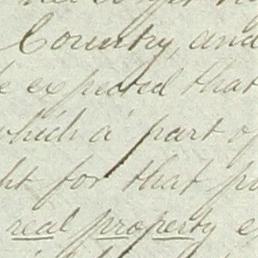 Country, and
expected that
which a part of
for that
real property